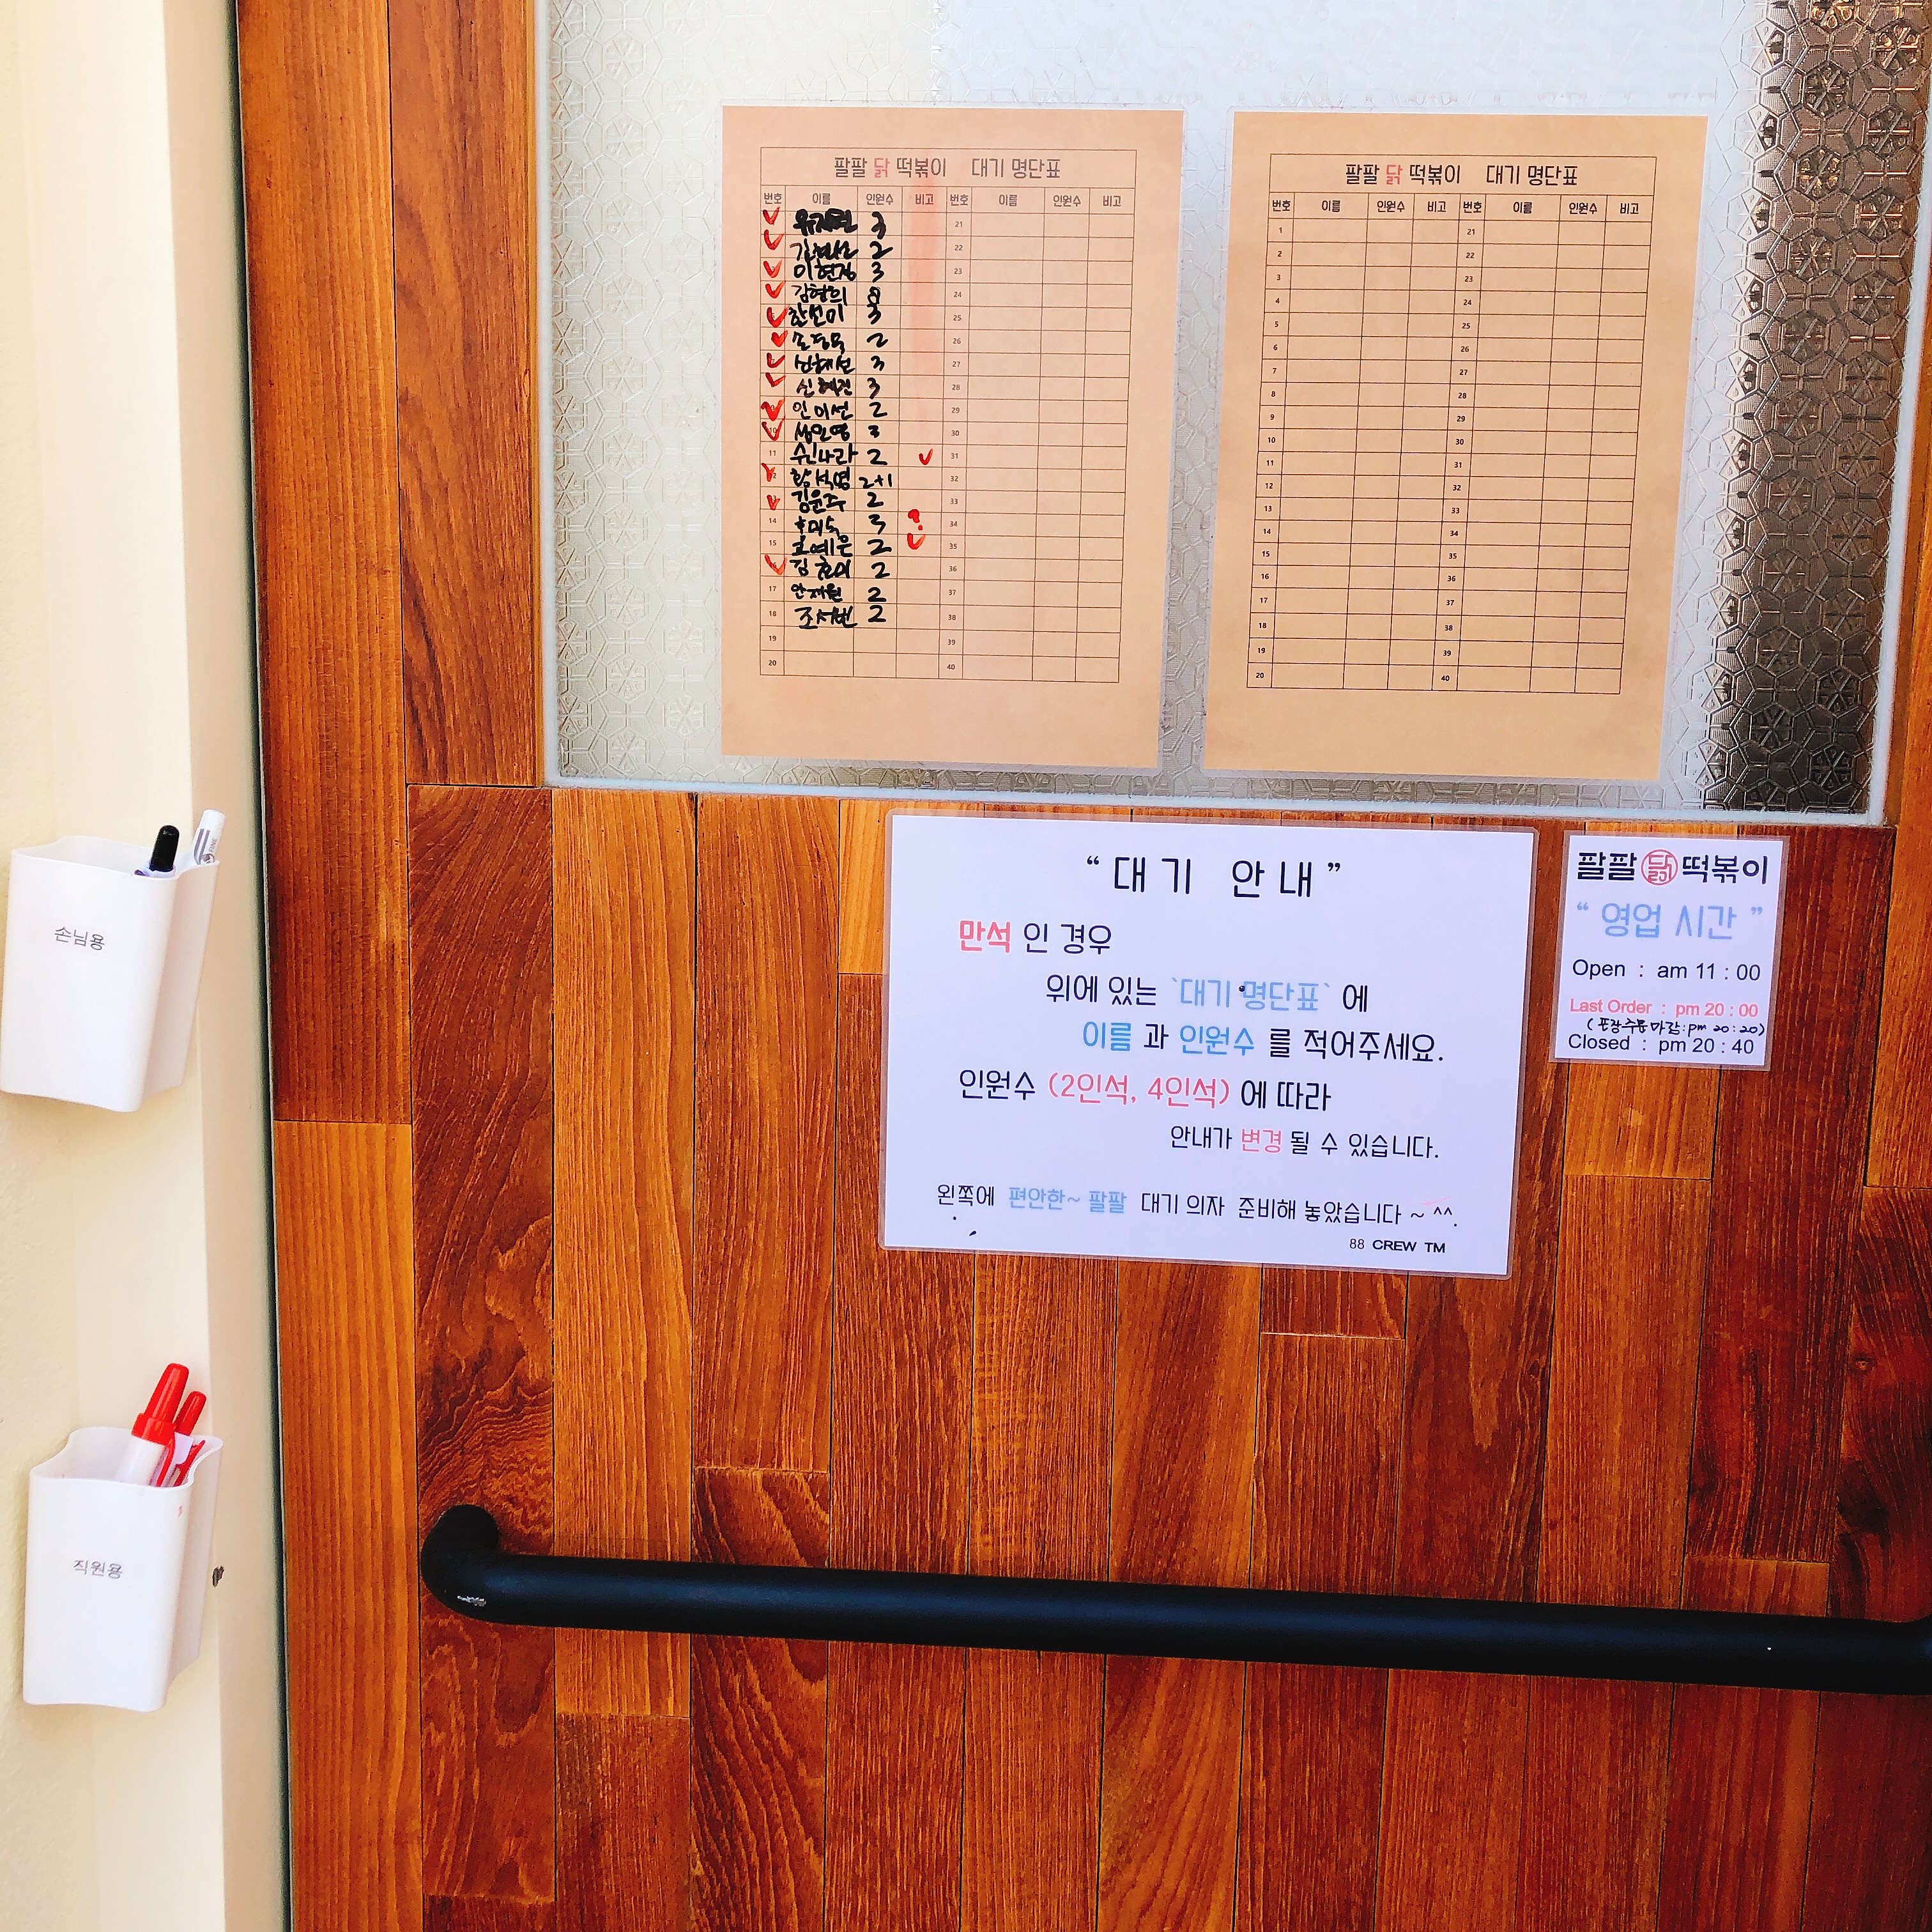 팔팔 닭 떡볶이 대기 명단표
번호 이름 인원수 비고 번호 이름 인원수 비고
유지원 3 21
김현선 2 22
이현정 3 23
김형희 24
한선미 3 25
2 26
3 27
신혜진 3 28
인미선 2 29
10 성민영 3 30
11 수빈나라 2 31
12 황석영 2+1 32
김윤주 2 33
14 3 ? 34
15 고예은 2 35
김효미 2 36
17 안재원 2 37
18 조서빈 2 38
19 39
20 40
팔팔 닭 떡볶이 대기 명단표
번호 이름 인원수 비고 번호 이름 인원수 비고
1 21
2 22
3 23
4 24
5 25
6 26
7 27
8 28
9 29
10 30
11 31
12 32
13 33
14 34
15 35
16 36
17 37
18 38
19 39
20 40
“ 대기 안내 ”
만석 인 경우
위에 있는 `대기 명단표` 에
이름 과 인원수 를 적어주세요.
인원수 (2인석, 4인석) 에 따라
안내가 변경 될 수 있습니다.
왼쪽에 편안한~ 팔팔 대기 의자 준비해 놓았습니다 ~ ^^.
88 CREW TM
팔팔 닭 떡볶이
“ 영업 시간 ”
Open : am 11 : 00
Last Order : pm 20 : 00
(포장주문마감:pm 20:20)
Closed : pm 20 : 40
손님용
직원용